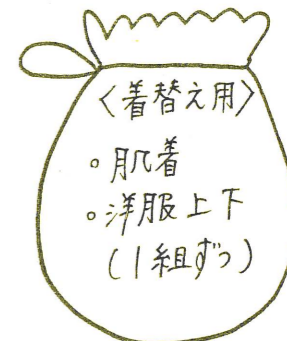 〈着替え用〉
。肌着
。洋服上下
(1組ずつ)